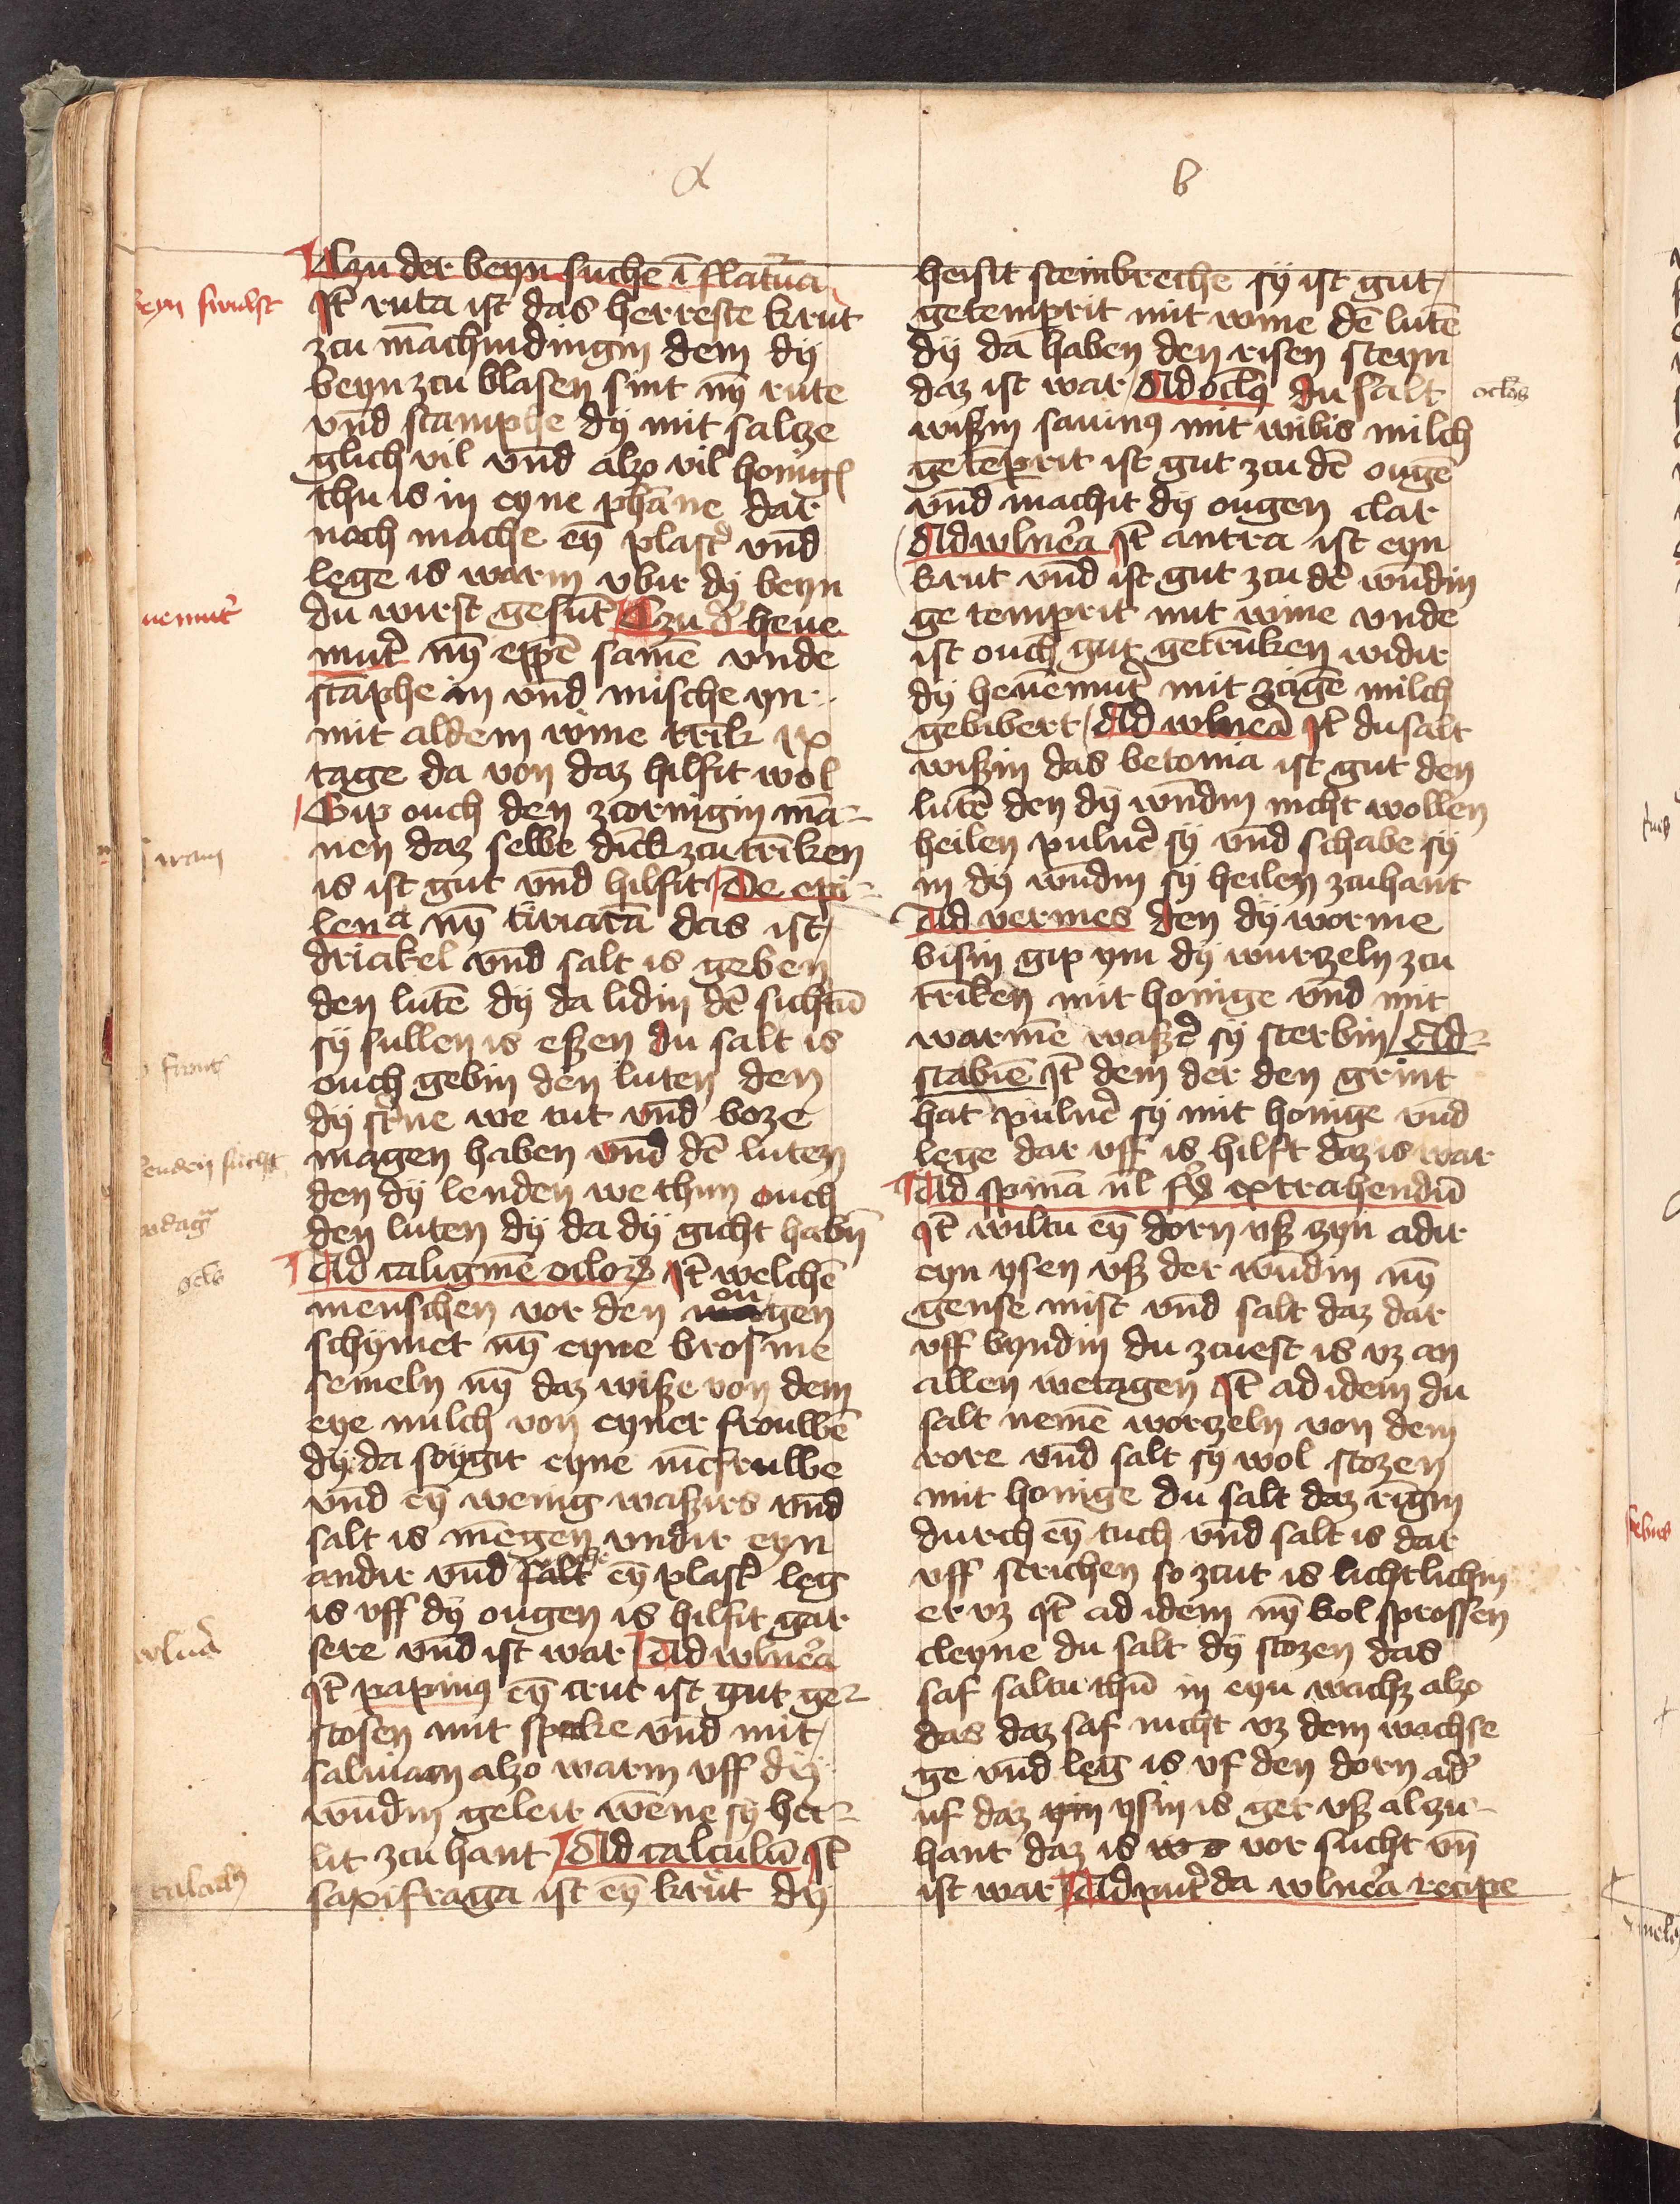 a
b
Czu der beyn suche i flatura
beyn swulst
It ruta ist das herreste krut
zcu māchindingin dem dy
beyn zcu blasen sint nȳ rute
vnd stamphe dy mit salcze
glich vil vnd alzo vil honig
thu is in eyne phāne dar
noch mache eȳ plast' vnd
lege is warm vbir dy beyn
du wirst gesūt Czu d' heue
uemut'
mut' nȳ eppē samē vnde
stāphe in vnd mische yn
mit aldem wine trīk ix
tage da von daz hilfit wol
Gip ouch den zcornigin mā-
nen daz selbe dick zcu trīken
is ist gut vnd hilfit De epi-
lena nȳ tiriacā das ist
driakel vnd salt is geben
den lutē dy da lidin dē suchtū
sy sullen is eßen du salt is
ouch gebin den luten den
dy st'ne we tut vnd boze
magen haben vnd dē luten
den dy lenden we thun ouch
lenden sucht
den luten dy da dy gicht habn̄
Ad caliginē oclor' It welchē
ocls
menschen vor den ougen
schymet nȳ eyne brosme
semeln nȳ daz wiße von dem
eye milch von eyner frouwē
dy da soygit eyne
vnd eȳ wenig waßirs vnd
salt is mēgen vndir eyn
andir vnd eȳ plast' leg
is vff dy ougen is hilfit gar
sere vnd ist war Ad vlnera
vlnera
It papinus eȳ crut ist gut ge-
stosen mit specke vnd mit
salmian alzo warm vff dy
wūdin geleit wēne sy hei-
lit zcu hant Ad calculū It
calculus
saxifraga ist eȳ krut dy
heisit steinbreche sy ist gut
getemprit mit wine dē lutē
dy da haben den risen steyn
daz ist war Ad oclis du salt
oclos
wißin sauinus mit wibis milch
getēprit ist gut zcu dē ougē
vnd machit dy ougen clar
Ad vlnera It antra ist eyn
krut vnd ist gut zcu dē wūdin
ge temprit mit wine vnde
ist ouch gut getrūken widir
dy heuēmut' mit zcigē milch
gebibert Ad vlnera It du salt
wißin das betonia ist gut den
lutē den dy wūdin nicht wollen
heilen puluē sy vnd schabe sy
in dy wūdin sy heilen zcuhant
Ad vermes den dy worme
bisin gip ym dy wurtzeln zcu
trīken mit honige vnd mit
warmē waß' sy sterbin Ad
scabiē It dem der den grint
hat puluē sy mit honige vnd
lege dar vff is hilft daz is war
Ad spinā ul extrahendū
It wiltu eȳ dorn vß zyn adir
eyn ysen vß der wūdin nȳ
gense mist vnd salt daz dar
vff byndin du zcuest is vz an
allen wetagen It ad idem du
salt nemē worczeln von dem
rore vnd salt sy wol stozen
mit honige du salt daz rigin
durch eȳ tuch vnd salt is dar
vff strichen so zcut is lichtlichin
er vz It ad idem nȳ kol sprossen
cleyne du salt dy stozen das
saf saltu thū in eyn wachz alzo
das daz saf nicht vz dem wachse
ge vnd leg is vf den dorn ad'
uf daz ysin is get vß alzu-
hant daz is vor sucht vn̄
ist war Ad putrida vlnera recipe